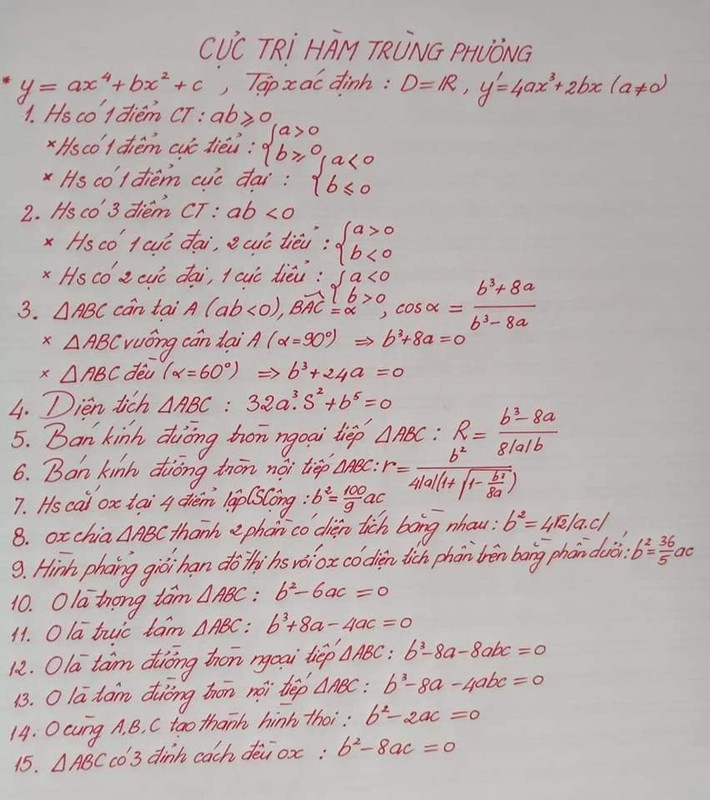 CỰC TRỊ HÀM TRÙNG PHƯƠNG
* y = ax⁴ + bx² + c , Tập xác định : D = ℝ , y' = 4ax³ + 2bx (a ≠ 0)
1. Hs có 1 điểm CT : ab ≥ 0
× Hs có 1 điểm cực tiểu : { a > 0 b ≥ 0
× Hs có 1 điểm cực đại : { a < 0 b ≤ 0
2. Hs có 3 điểm CT : ab < 0
× Hs có 1 cực đại, 2 cực tiểu : { a > 0 b < 0
× Hs có 2 cực đại, 1 cực tiểu : { a < 0 b > 0
3. ΔABC cân tại A (ab < 0), BAC = α , cos α = (b³ + 8a)/(b³ - 8a)
× ΔABC vuông cân tại A (α = 90°) ⇒ b³ + 8a = 0
× ΔABC đều (α = 60°) ⇒ b³ + 24a = 0
4. Diện tích ΔABC : 32a³.S² + b⁵ = 0
5. Bán kính đường tròn ngoại tiếp ΔABC : R = (b³ - 8a)/(8|a|b)
6. Bán kính đường tròn nội tiếp ΔABC : r = b²/(4|a|(1 + √(1 - b³/8a)))
7. Hs cắt ox tại 4 điểm lập CSCộng : b² = 100/9 ac
8. ox chia ΔABC thành 2 phần có diện tích bằng nhau : b² = 4√2|a.c|
9. Hình phẳng giới hạn đồ thị hs với ox có diện tích phần trên bằng phần dưới : b² = 36/5 ac
10. O là trọng tâm ΔABC : b² - 6ac = 0
11. O là trực tâm ΔABC : b³ + 8a - 4ac = 0
12. O là tâm đường tròn ngoại tiếp ΔABC : b³ - 8a - 8abc = 0
13. O là tâm đường tròn nội tiếp ΔABC : b³ - 8a - 4abc = 0
14. O cùng A, B, C tạo thành hình thoi : b² - 2ac = 0
15. ΔABC có 3 đỉnh cách đều ox : b² - 8ac = 0